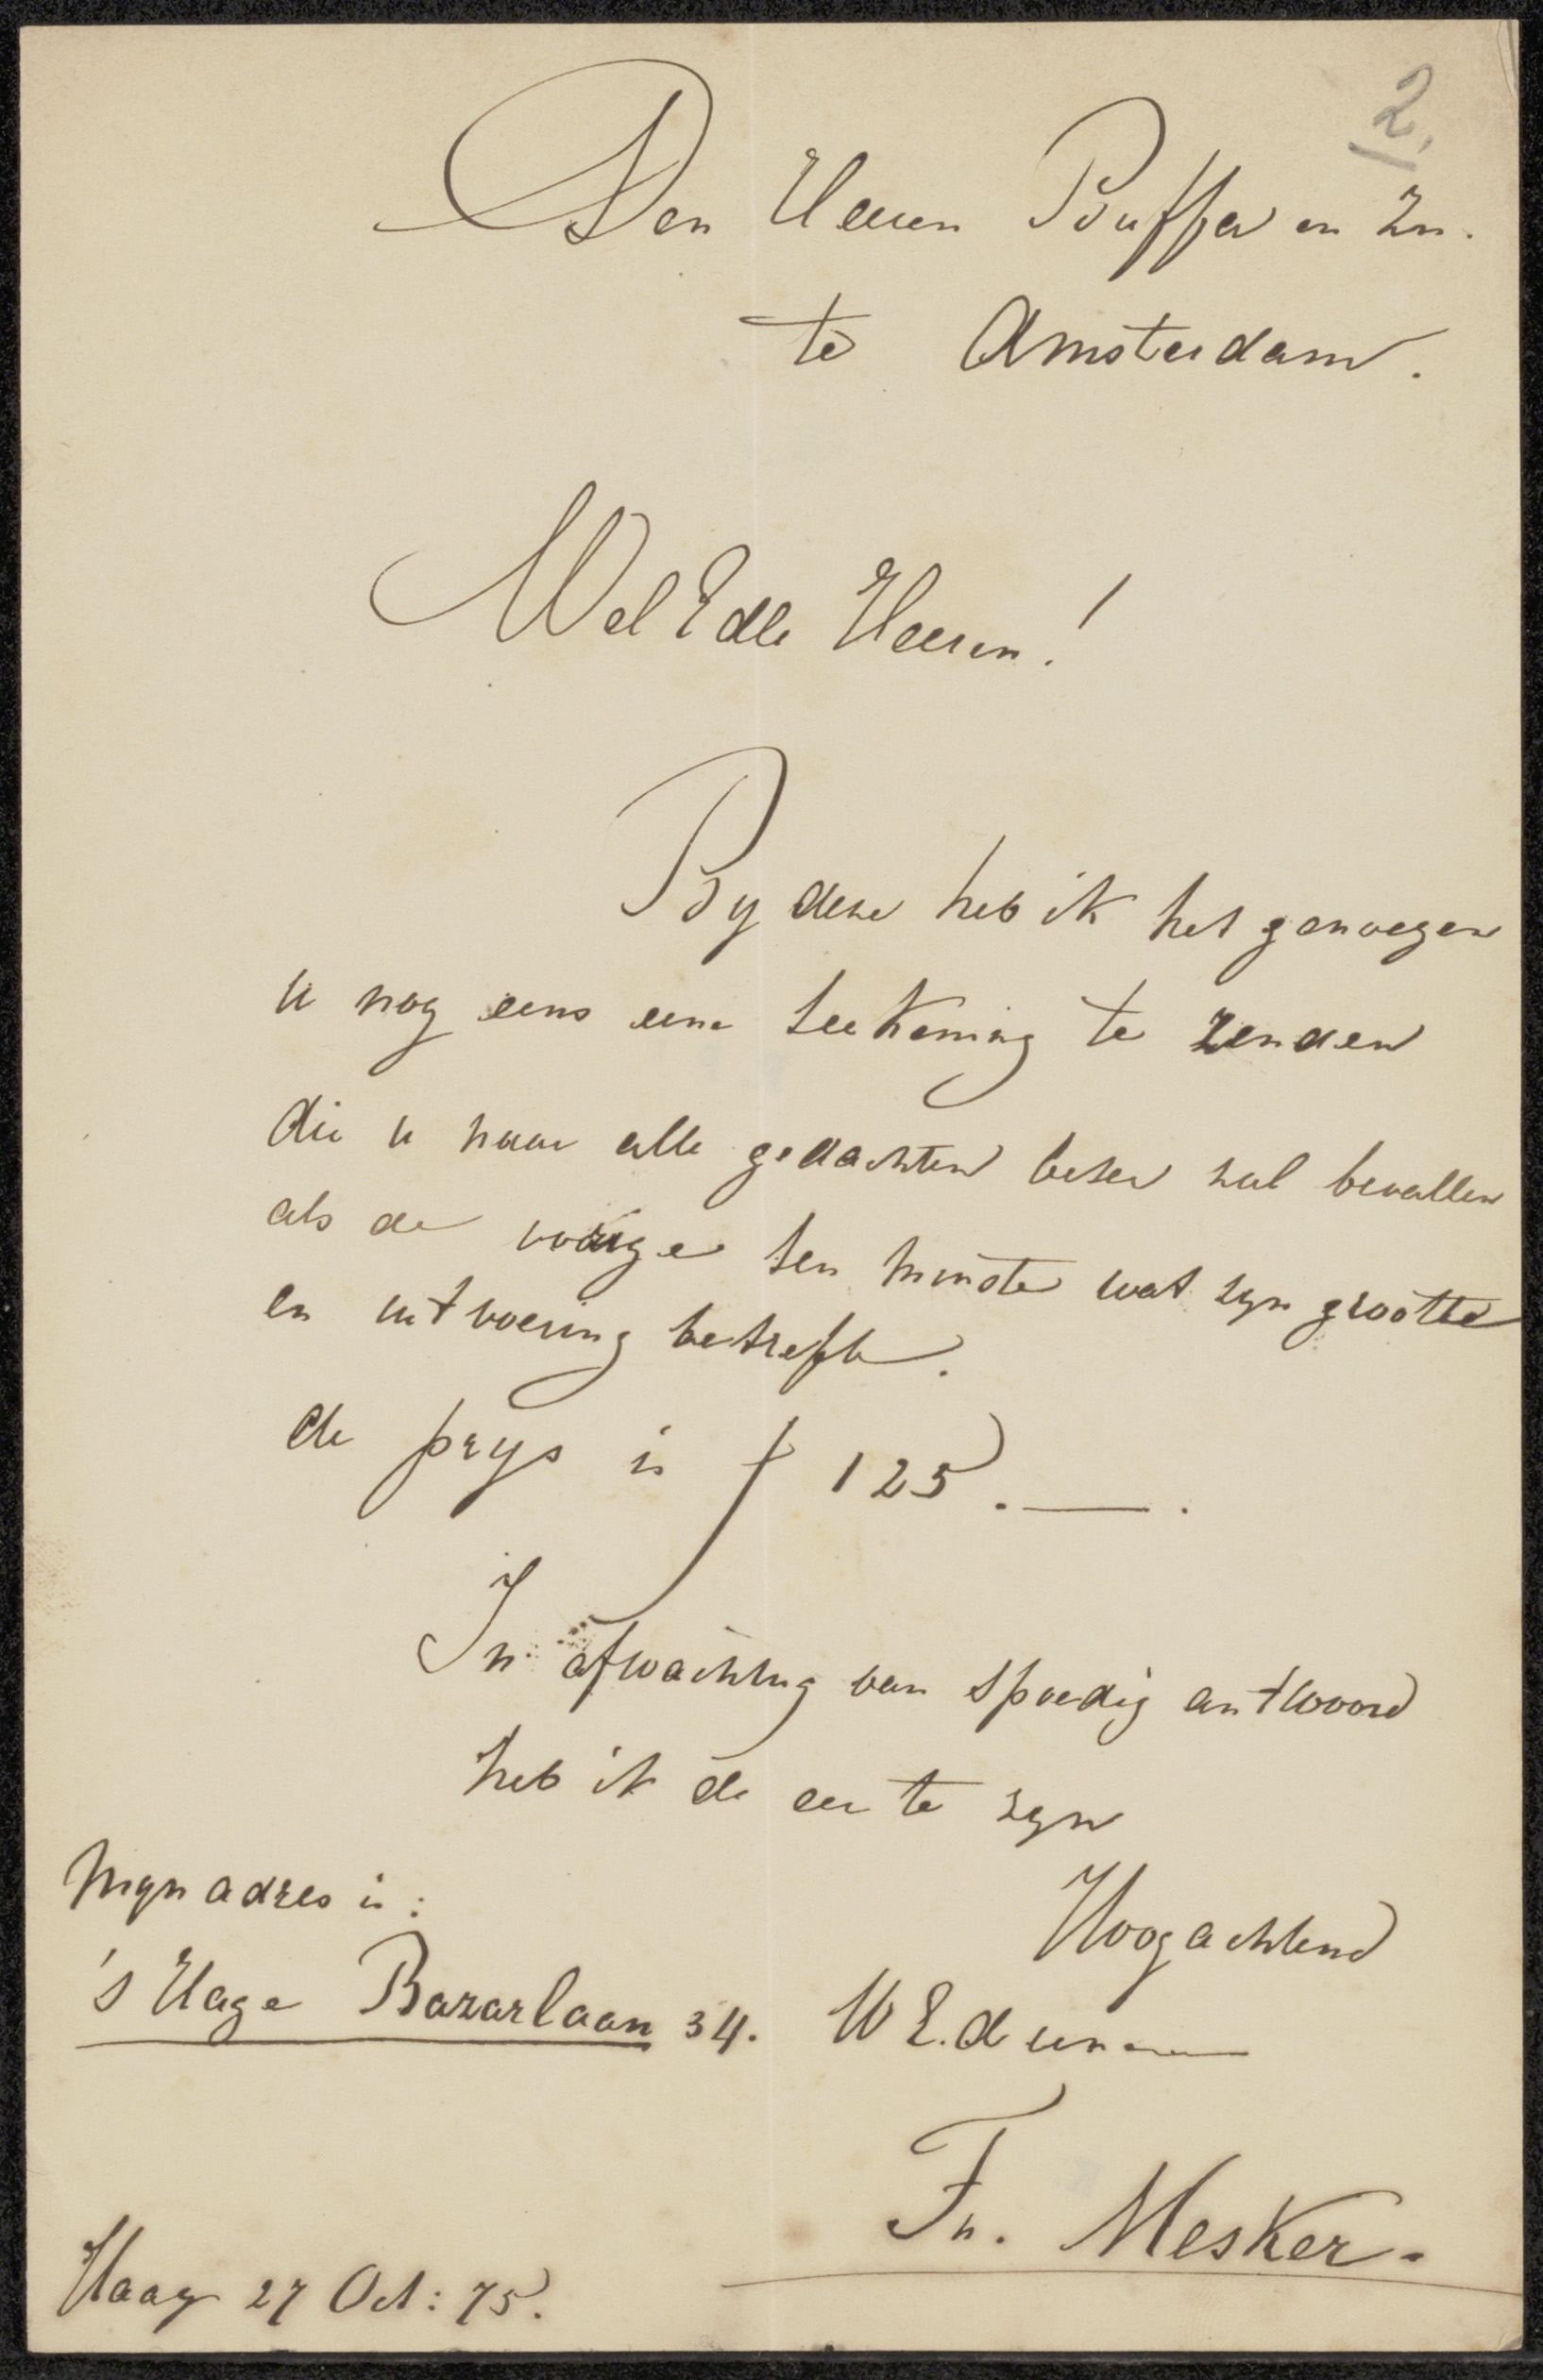 2.
Den Heeren Buffa en Zn.
te Amsterdam.
Wel Edle Heeren!
By deze heb ik het genoegen
u nog eens eene teekening te zenden
die u naar alle gedachten beter zal bevallen
als de vorige ten minste wat zyn grootte
en uitvoering betreft.
de prys is f 125.—.
In afwachting van spoedig antwoord
heb ik de eer te zyn
Hoogachtend
Myn adres is:
's Hage Bazarlaan 34.
W E. d
Th. Mesker.
Haag 27 Oct: 75.